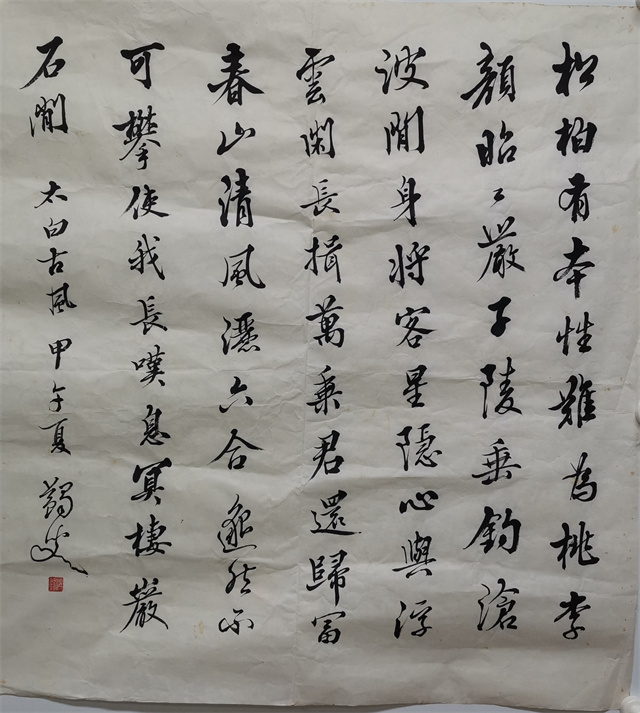 松柏有本性難為桃李
顏昭〻嚴子陵垂釣滄
波間身將客星隱心與浮
雲閑長揖萬乘君還歸富
春山清風灑六合邈然不
可攀使我長嘆息冥棲巖
石間 太白古風 甲午夏